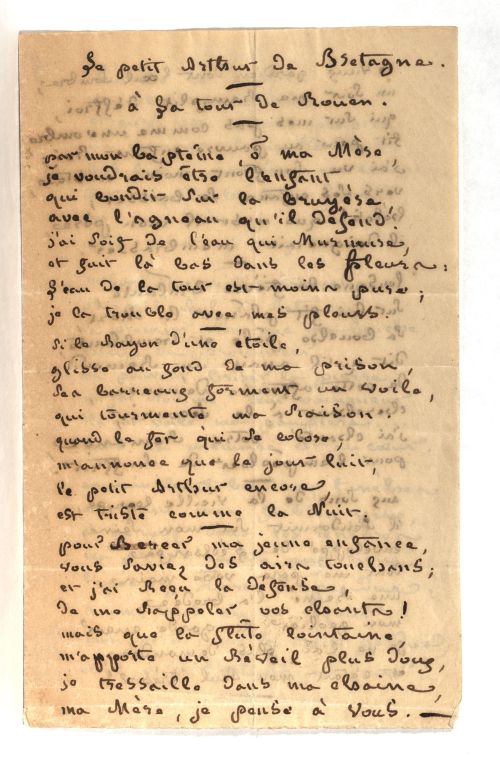 Le petit Arthur de Bretagne.
à La tour de Rouen.
par mon baptême, ô ma Mère,
je voudrais être l'enfant
qui bondit sur la bruyère,
avec l'agneau qu'il défend.
j'ai soif de l'eau qui Murmure,
et fuit là bas dans les fleurs:
L'eau de la tour est moins pure;
je la trouble avec mes pleurs.
Si le Rayon d'une étoile,
glisse au fond de ma prison,
Ses barreaux forment un voile,
qui tourmente ma raison:
quand le fer qui se colore,
m'annonce que le jour luit,
le petit Arthur encore,
est triste comme la Nuit.
pour Bercer ma jeune enfance,
vous saviez des airs touchans;
et j'ai Reçu la défense,
de me rappeler vos chants!
mais que la flûte lointaine,
m'apporte un Réveil plus doux,
je tressaille dans ma chaine,
ma Mère, je pense à vous. —